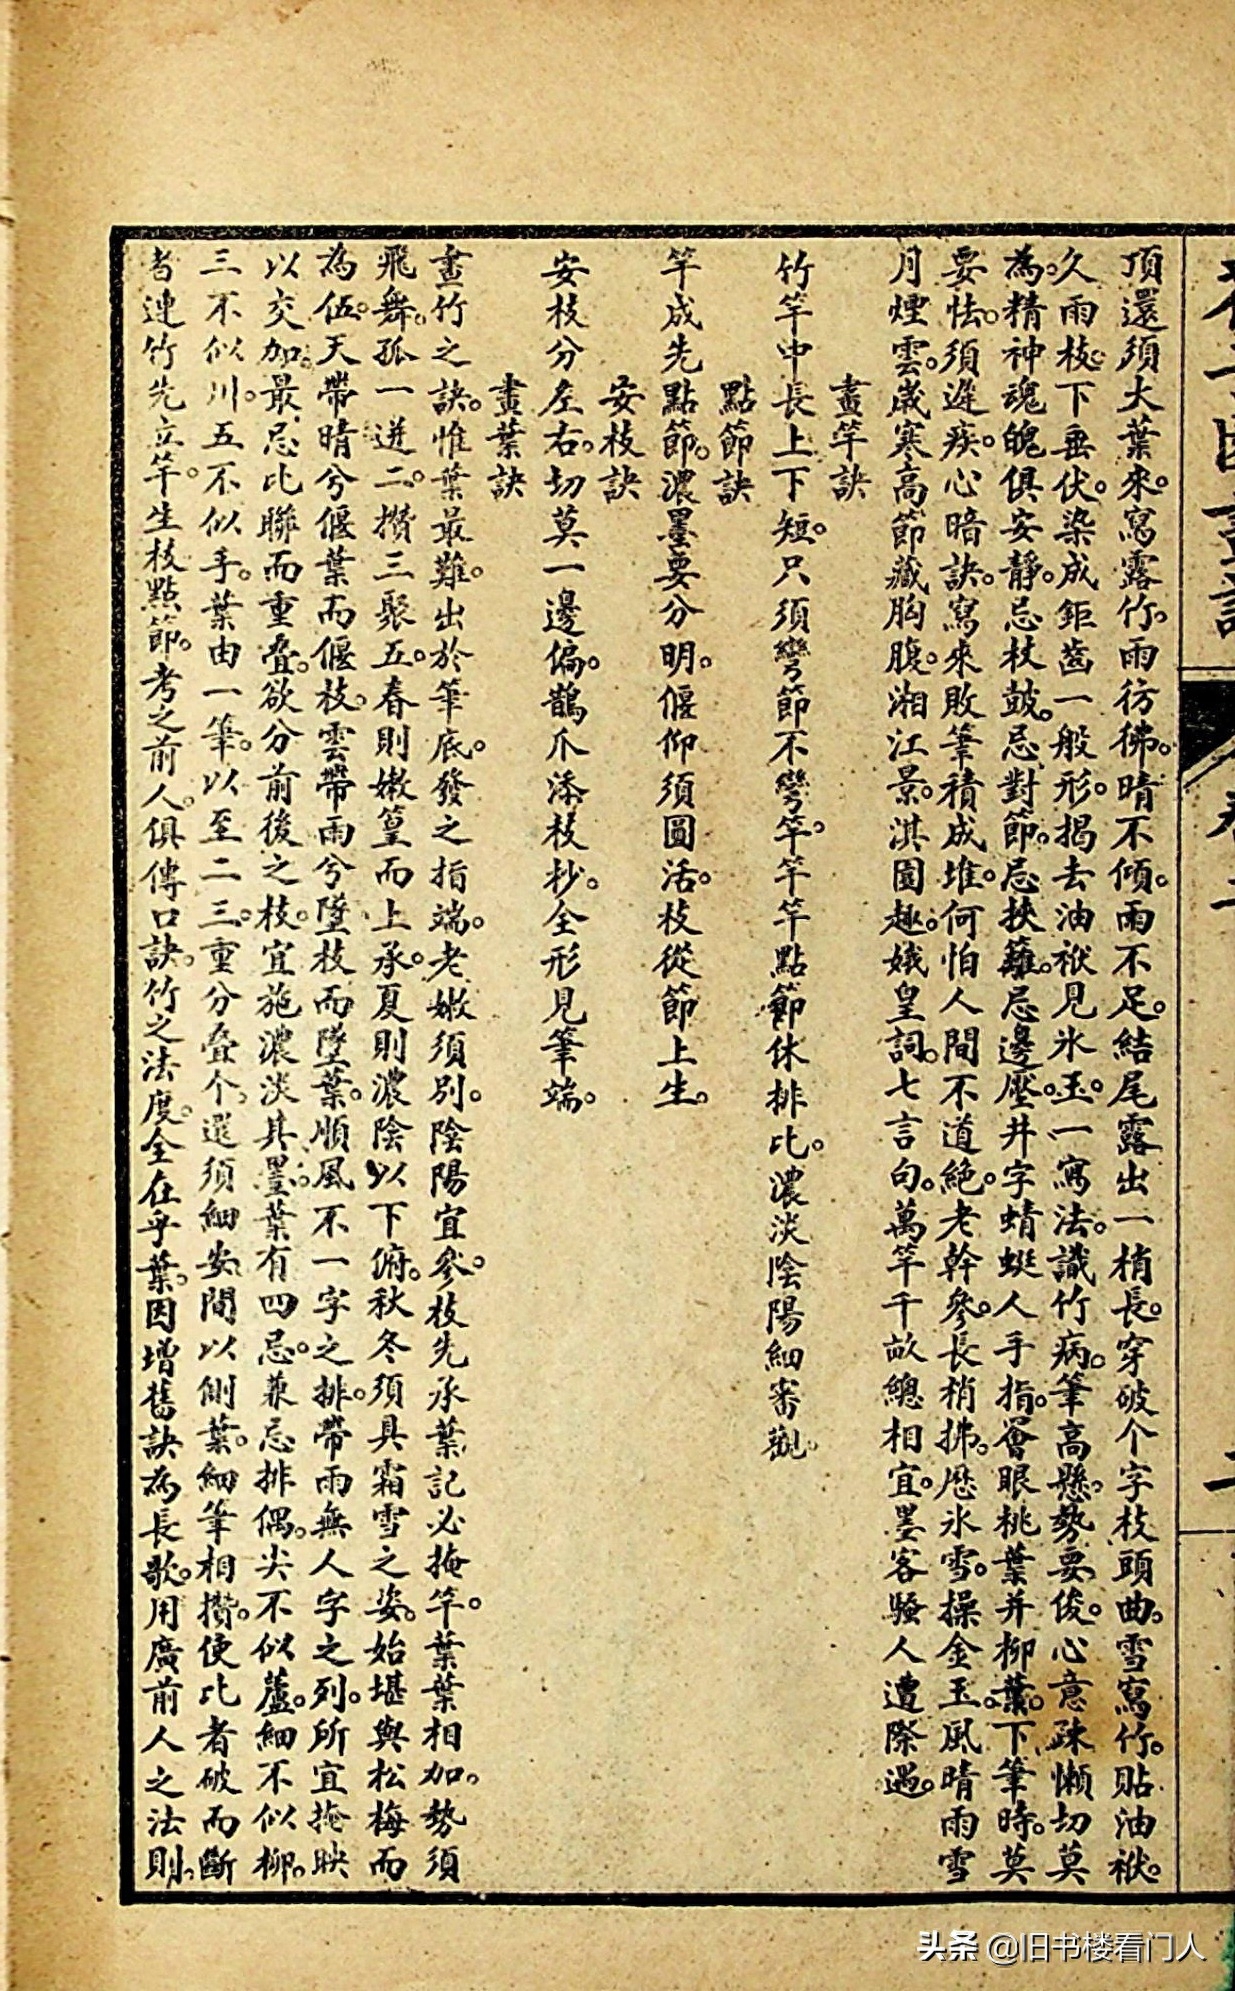 頂還須大葉來。寫露竹。雨彷彿。晴不傾。雨不足。結尾露出一梢長。穿破个字枝頭曲。雪寫竹。貼油袱。
久雨枝。下垂伏。染成鉅齒一般形。揭去油袱見氷玉。一寫法。識竹病。筆高懸。勢要俊。心意疎懶切莫
為。精神魂魄俱安靜。忌杖鼓。忌對節。忌挾籬。忌邊壓。井字蜻蜓人手指。罾眼桃葉并柳葉。下筆時。莫
要怯。須遲疾。心暗訣。寫來敗筆積成堆。何怕人間不道絶。老幹參。長梢拂。歷氷雪。操金玉。風晴雨雪
月煙雲。歲寒高節藏胸腹。湘江景。淇園趣。娥皇詞。七言句。萬竿千畝總相宜。墨客騷人遭際遇。
畫竿訣
竹竿中長上下短。只須彎節不彎竿。竿竿點節休排比。濃淡陰陽細審觀。
點節訣
竿成先點節。濃墨要分明。偃仰須圓活。枝從節上生。
安枝訣
安枝分左右。切莫一邊偏。鵲爪添枝抄。全形見筆端。
畫葉訣
畫竹之訣。惟葉最難。出於筆底。發之指端。老嫩須別。陰陽宜參。枝先承葉記必掩竿。葉葉相加。勢須
飛舞。孤一迸二。攢三聚五。春則嫩篁而上承。夏則濃陰以下俯。秋冬須具霜雪之姿。始堪與松梅而
為伍。天帶晴兮偃葉而偃枝。雲帶雨兮墜枝而墜葉。順風不一字之排。帶雨無人字之列。所宜掩映
以交加。最忌比聯而重疊。欲分前後之枝。宜施濃淡其墨。葉有四忌。兼忌排偶。尖不似蘆。細不似柳。
三不似川。五不似手。葉由一筆。以至二三。重分疊个。還須細安。間以側葉。細筆相攢。使比者破而斷
者連竹先立竿。生枝點節。考之前人。俱傳口訣。竹之法度。全在乎葉。因增舊訣為長歌。用廣前人之法則。
卷二
二
头条 @旧书楼看门人